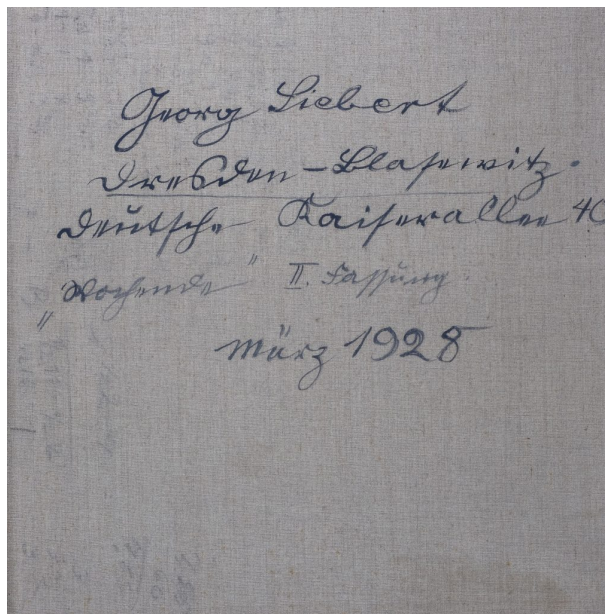 Georg Liebert
Dresden-Blasewitz.
Deutsche Kaiserallee 40
"Wochende" II. Fassung.
März 1928